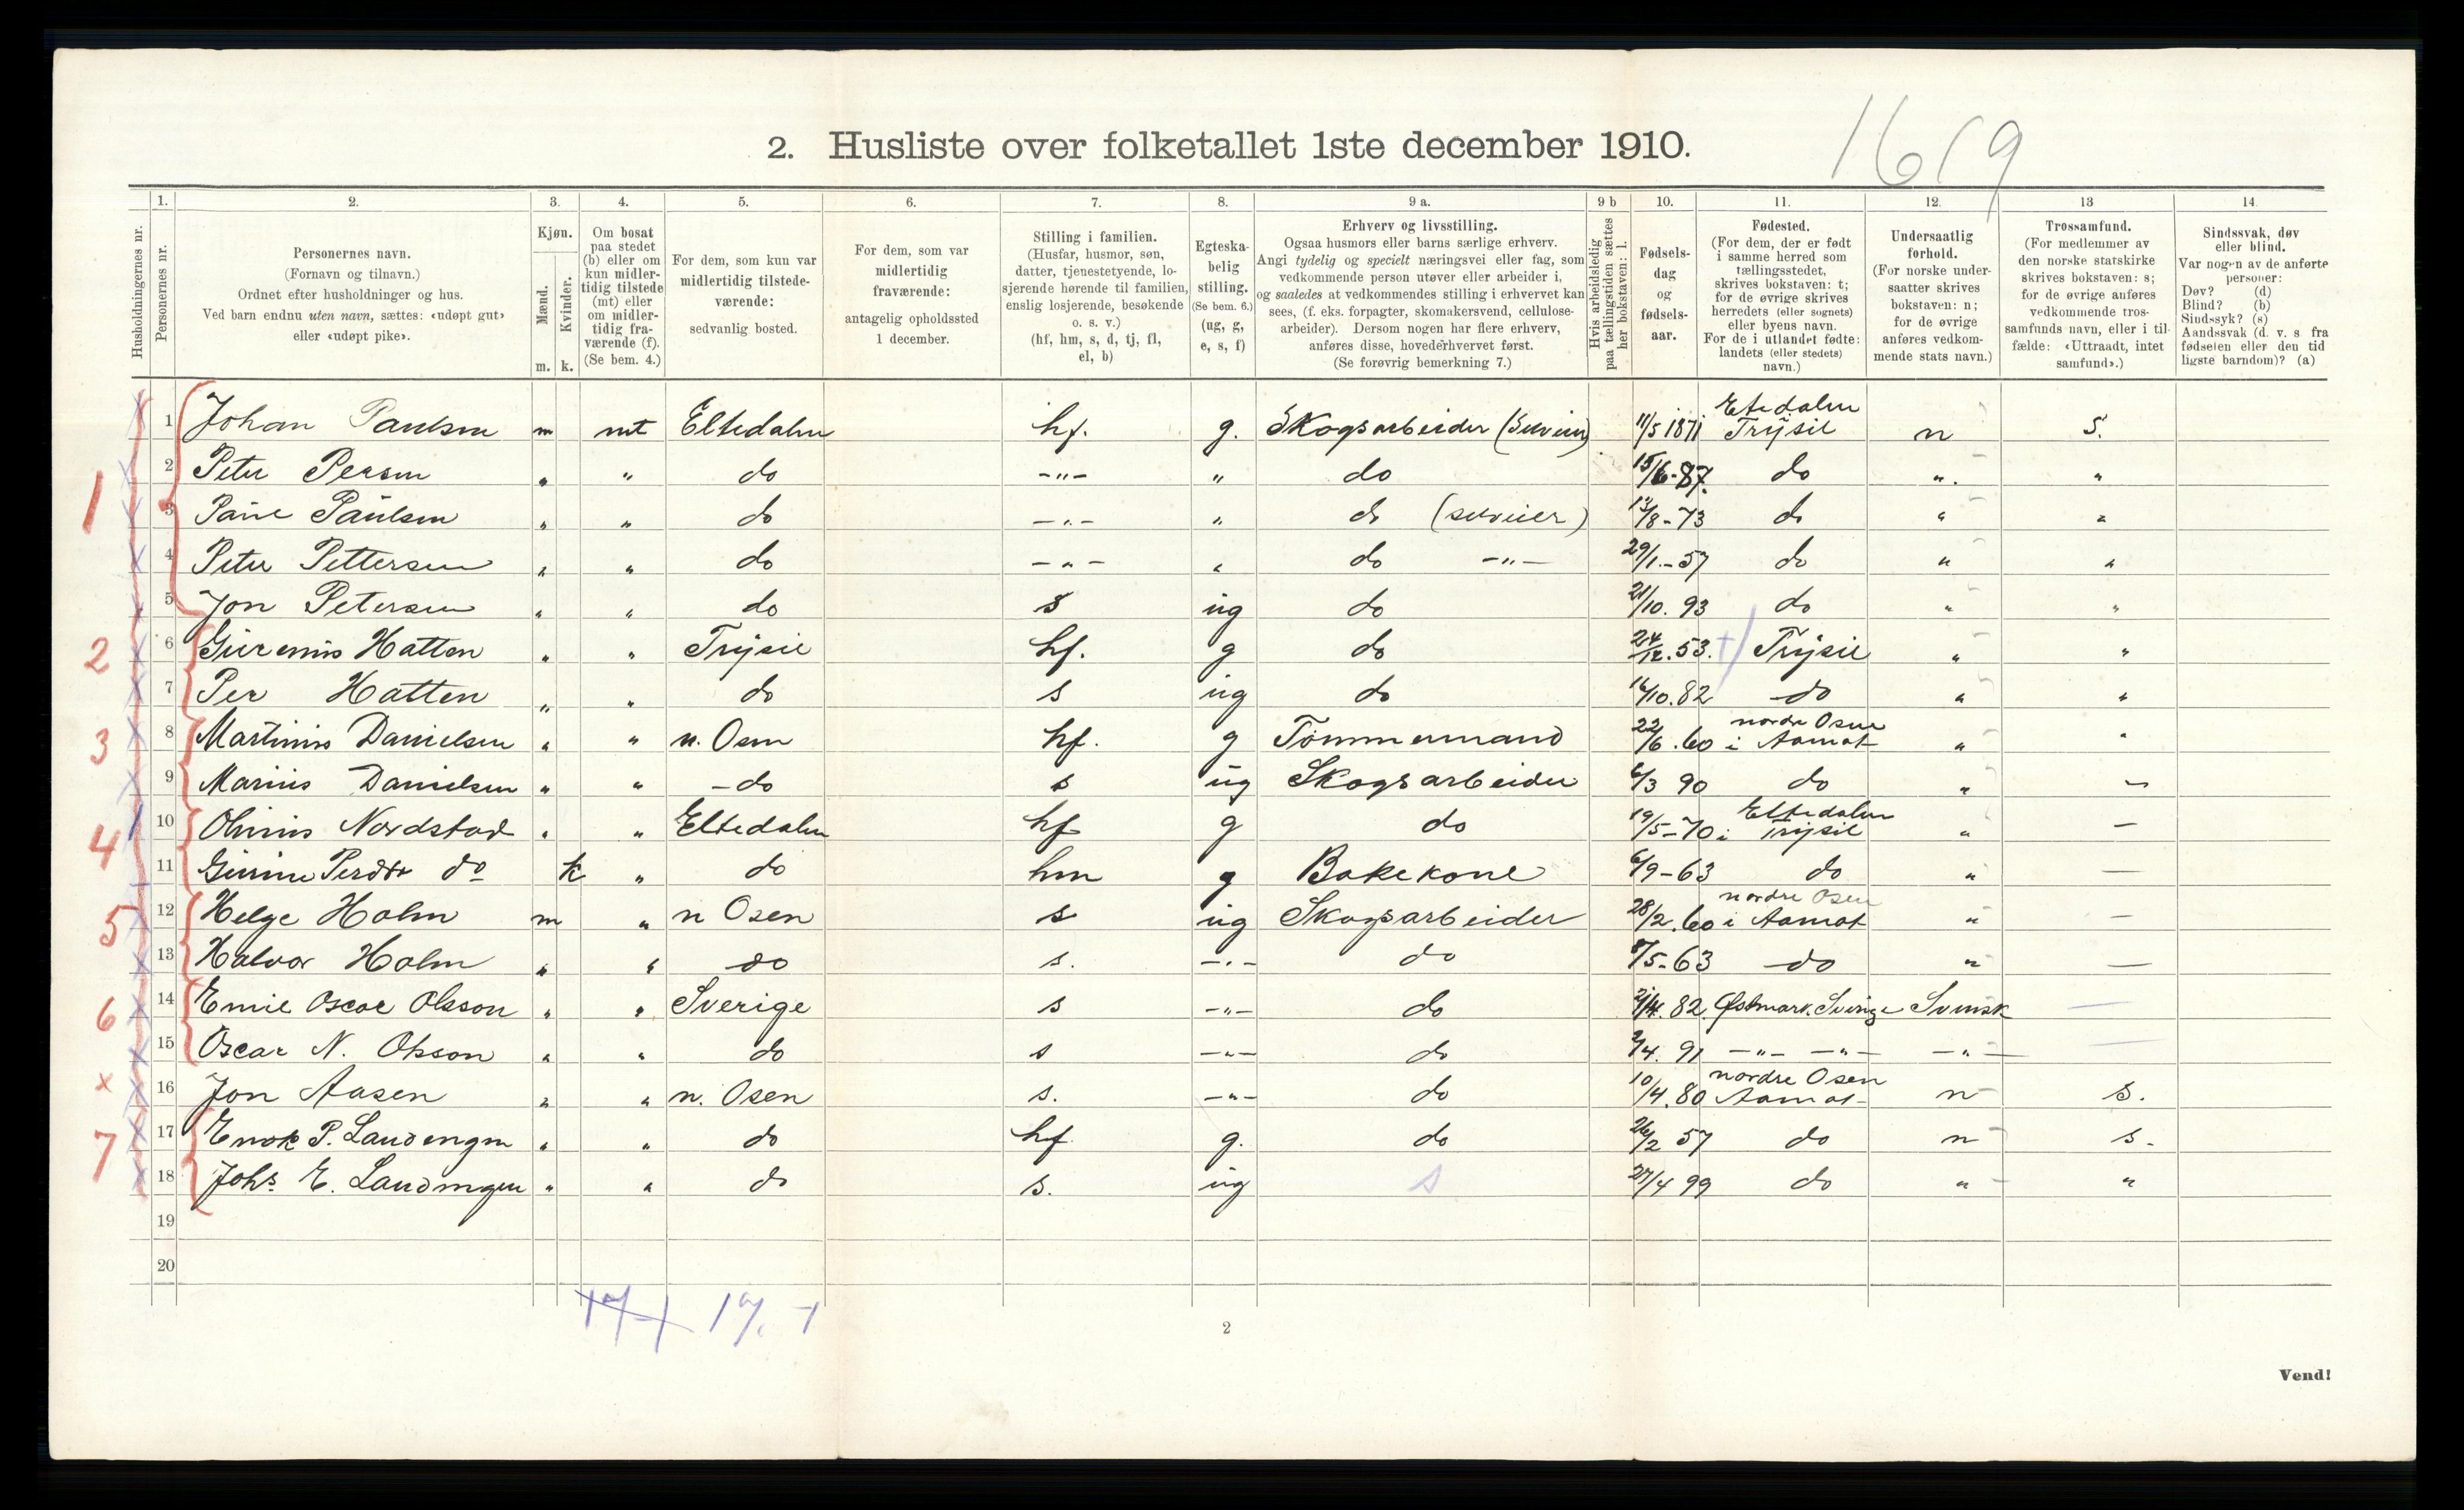 1619
2. Husliste over folketallet 1ste december 1910.
1. 2. 3. 4. 5. 6. 7. 8. 9 a. 9 b 10. 11. 12. 13 14.
Husholdningernes nr.
Personernes nr.
Personernes navn.
(Fornavn og tilnavn.)
Ordnet efter husholdninger og hus.
Ved barn endnu uten navn, sættes: «udøpt gut»
eller «udøpt pike».
Kjøn.
Mænd.
Kvinder.
m. k.
Om bosat
paa stedet
(b) eller om
kun midler-
tidig tilstede
(mt) eller
om midler-
tidig fra-
værende (f).
(Se bem. 4.)
For dem, som kun var
midlertidig tilstede-
værende:
sedvanlig bosted.
For dem, som var
midlertidig
fraværende:
antagelig opholdssted
1 december.
Stilling i familien.
(Husfar, husmor, søn,
datter, tjenestetyende, lo-
sjerende hørende til familien,
enslig losjerende, besøkende
o. s. v.)
(hf, hm, s, d, tj, fl,
el, b)
Egteska-
belig
stilling.
(Se bem. 6.)
(ug, g,
e, s, f)
Erhverv og livsstilling.
Ogsaa husmors eller barns særlige erhverv.
Angi tydelig og specielt næringsvei eller fag, som
vedkommende person utøver eller arbeider i,
og saaledes at vedkommendes stilling i erhvervet kan
sees, (f. eks. forpagter, skomakersvend, cellulose-
arbeider). Dersom nogen har flere erhverv,
anføres disse, hovederhvervet først.
(Se forøvrig bemerkning 7.)
Hvis arbeidsledig
paa tællingstiden sættes
her bokstaven: l.
Fødsels-
dag
og
fødsels-
aar.
Fødested.
(For dem, der er født
i samme herred som
tællingsstedet,
skrives bokstaven: t;
for de øvrige skrives
herredets (eller sognets)
eller byens navn.
For de i utlandet fødte:
landets (eller stedets)
navn.)
Undersaatlig
forhold.
(For norske under-
saatter skrives
bokstaven: n;
for de øvrige
anføres vedkom-
mende stats navn.)
Trossamfund.
(For medlemmer av
den norske statskirke
skrives bokstaven: s;
for de øvrige anføres
vedkommende tros-
samfunds navn, eller i til-
fælde: «Uttraadt, intet
samfund».)
Sindssvak, døv
eller blind.
Var nogen av de anførte
personer:
Døv? (d)
Blind? (b)
Sindssyk? (s)
Aandssvak (d. v. s. fra
fødselen eller den tid
ligste barndom)? (a)
1 Johan Paulsen m mt Eltedalen hf. g. Skogsarbeider 11/5 1871 Trysil n S.
1 2 Peter Persen " " do -"- " do 15/6-87. do " "
3 Paul Paulsen " " do -"- " do 13/8-73 do " "
4 Peter Pettersen " " do -"- " do -"- 29/1-57 do " "
5 Jon Petersen " " do s ug do 21/10. 93 do " "
2 6 Gurenius Hatten " " Trysil hf. g do 24/12. 53. Trysil " "
7 Per Hatten " " do s ug do 16/10. 82 do " "
3 8 Martinius Danielsen " " n. Osen hf. g Tømmermand 22/6. 60 nordre Osen i Aamot " "
9 Marius Danielsen " " do s ug Skogsarbeider 6/3 90 do " -
4 10 Olinius Nordstad " " Eltedalen hf g do 19/5-70 Eltedalen i Trysil " -
11 Gurine do k " do hm g Bakekone 6/9-63 do " -
5 12 Helge Holm m " n Osen s ug Skogsarbeider 28/2. 60 nordre Osen i Aamot " -
13 Halvor Holm " " do s. -"- do 8/5-63 do " -
6 14 Emil Oscar Olsson " " Sverige s -"- do 82 Østmark. Sverige Svensk -
15 Oscar N. Olsson " " do s -"- do 2/4. 91 -"- -"- -"- -
x 16 Jon Aasen " " n. Osen s. -"- do 10/4. 80 nordre Osen Aamot n s.
7 17 Enok P. Landengen " " do hf. g. do 26/2 57 do n s.
18 Johs. E. Landengen " " do s. ug s 27/4 99 do " "
19
20
17-1 17. -1
2
Vend!